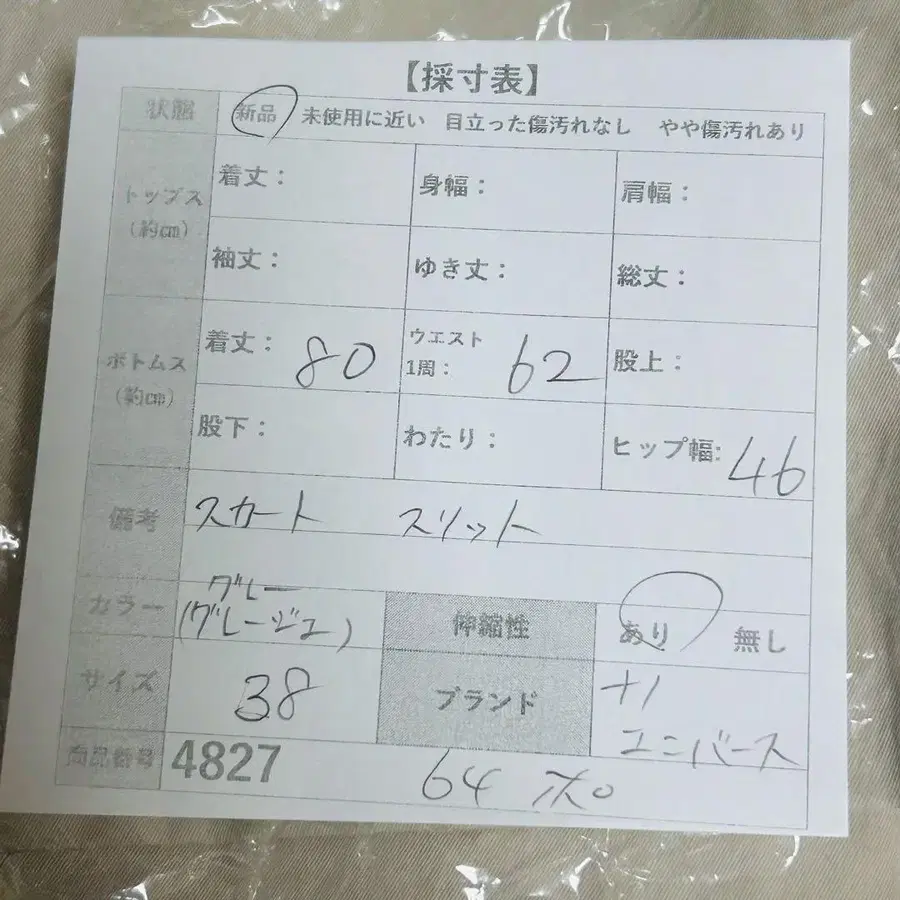 【採寸表】
状態 新品 未使用に近い 目立った傷汚れなし やや傷汚れあり
トップス (約㎝)
着丈： 身幅： 肩幅：
袖丈： ゆき丈： 総丈：
ボトムス (約㎝)
着丈： 80 ウエスト 1周： 62 股上：
股下： わたり： ヒップ幅: 46
備考 スカート スリット
カラー グレー (グレージュ) 伸縮性 あり 無し
サイズ 38 ブランド ユニバース
商品番号 4827 64